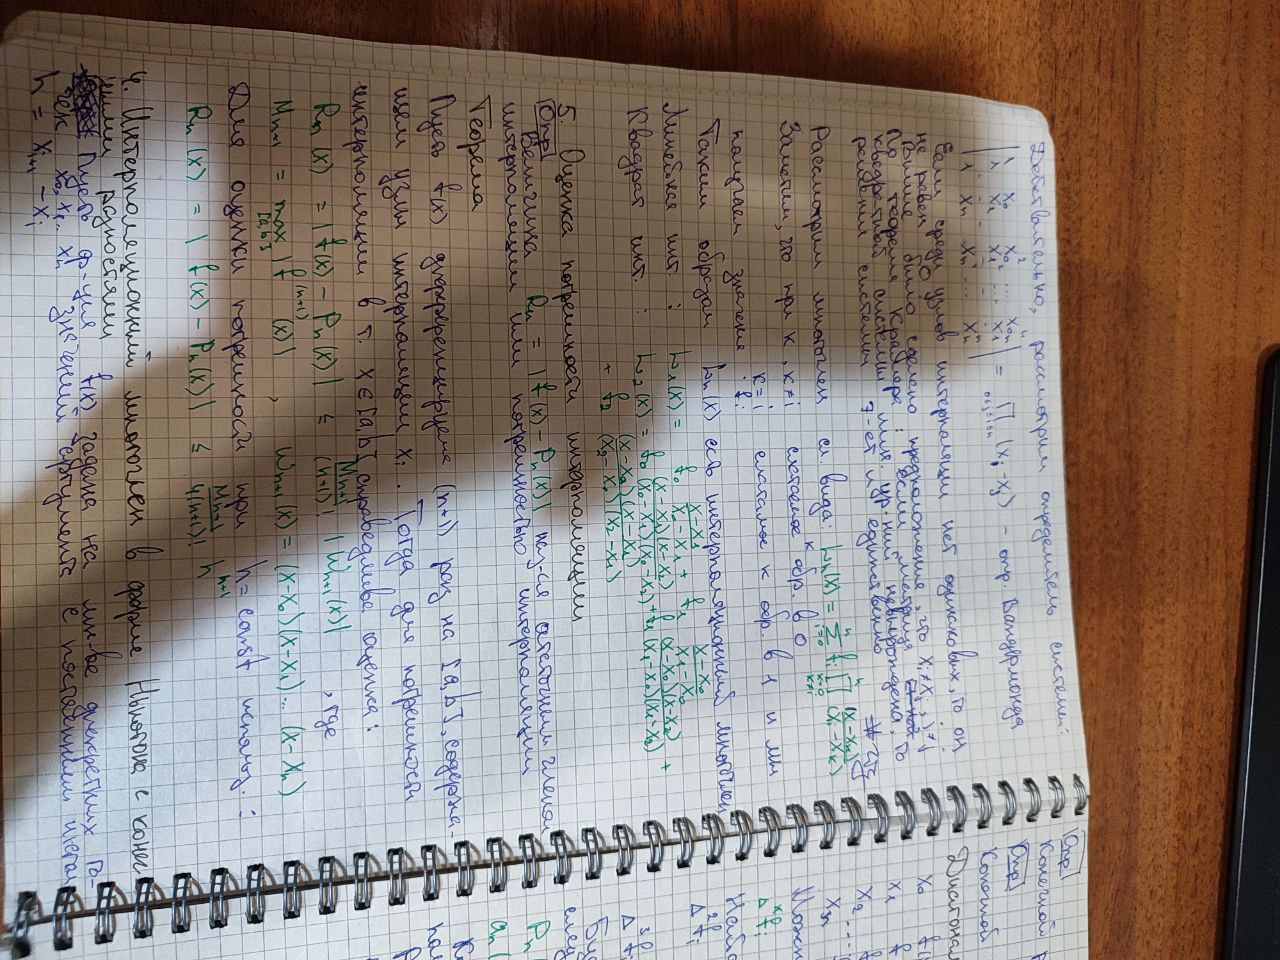 Действительно, рассмотрим определитель системы:
| 1 x₀ x₀² ... x₀ⁿ |
| 1 x₁ x₁² ... x₁ⁿ | = ∏ (xᵢ - xⱼ) - опр. Вандермонда
| . . . . . . . | 0≤j<i≤n
| 1 xₙ xₙ² ... xₙⁿ |
Если среди узлов интерполяции нет одинаковых, то он
не равен 0
Выше было сделано предположение, что xᵢ ≠ xⱼ, i≠j
По теореме Крамера: если матрица
квадратной системы лин. ур-ний невырождена, то
решение системы ∃-ет и единственно # чтд
Рассмотрим многочлен сл. вида: Lₙ(x) = ∑ᵢ₌₀ⁿ fᵢ ∏ₖ₌₀,ₖ≠ᵢⁿ (x-xₖ)/(xᵢ-xₖ)
Заметим, что при k, k≠i слагаемое обр. в 0
k=i слагаемое к обр. в 1 и мы
получаем значение fᵢ
Таким образом Lₙ(x) есть интерполяционный многочлен
Линейная инт. : L₁(x) = f₀ (x-x₁)/(x₀-x₁) + f₁ (x-x₀)/(x₁-x₀)
Квадрат инт. : L₂(x) = f₀ (x-x₁)(x-x₂)/(x₀-x₁)(x₀-x₂) + f₁ (x-x₀)(x-x₂)/(x₁-x₀)(x₁-x₂) +
+ f₂ (x-x₀)(x-x₁)/(x₂-x₀)(x₂-x₁)
5. Оценка погрешности интерполяции
Опр
Величина Rₙ = |f(x) - Pₙ(x)| наз-ся остаточным членом
интерполяции или погрешностью интерполяции
Теорема
Пусть f(x) дифференцируема (n+1) раз на [a,b], содержа-
щем узлы интерполяции xᵢ. Тогда для погрешности
интерполяции в т. x∈[a,b] справедлива оценка:
Rₙ(x) = |f(x) - Pₙ(x)| ≤ Mₙ₊₁/(n+1)! |ωₙ₊₁(x)| , где
Mₙ₊₁ = max |f⁽ⁿ⁺¹⁾(x)| , ωₙ₊₁(x) = (x-x₀)(x-x₁)...(x-xₙ)
[a,b]
Для оценки погрешности при h = const использ. :
Rₙ(x) = |f(x) - Pₙ(x)| ≤ Mₙ₊₁/4(n+1)! hⁿ⁺¹
4. Интерполяционный многочлен в форме Ньютона с конеч
ными разностями
Пусть ф-ция f(x) задана на мн-ве дискретных то-
чек x₀, x₁... xₙ значений аргумента с постоянным шагом
h = xᵢ₊₁ - xᵢ
Опр
Конечной
Опр
Конечной
Диагонал
x₀ f(
x₁ f
x₂
xₙ
Можн
Δᵏfᵢ
Найд
Δ²fᵢ
Δ³fᵢ
Буд
след
Pₙ
aₙ(